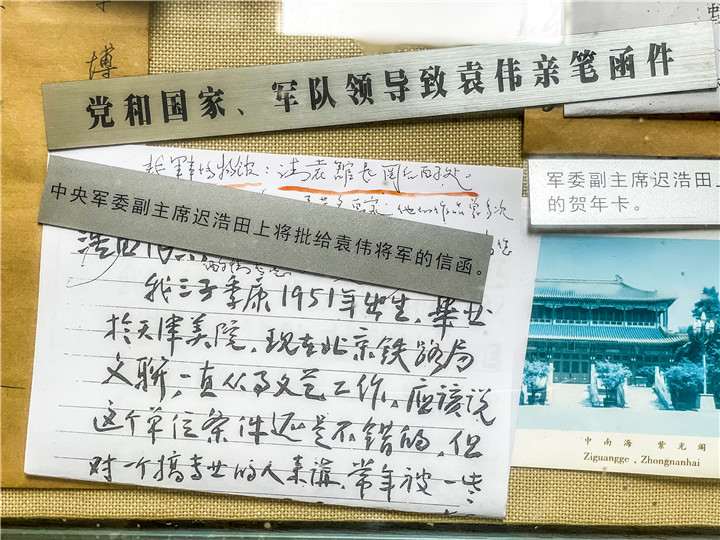 博
中
党和国家、军队领导致袁伟亲笔函件
军委副主席迟浩田上
的贺年卡。
中央军委副主席迟浩田上将批给袁伟将军的信函。
我三子季康1951年出生，毕业
于天津美院，现在北京铁路局
文联，一直从事文艺工作，应该说
这个单位条件还是不错的，但
对一个搞专业的人来讲，常年被一些
中南海 紫光阁
Ziguangge , Zhongnanhai